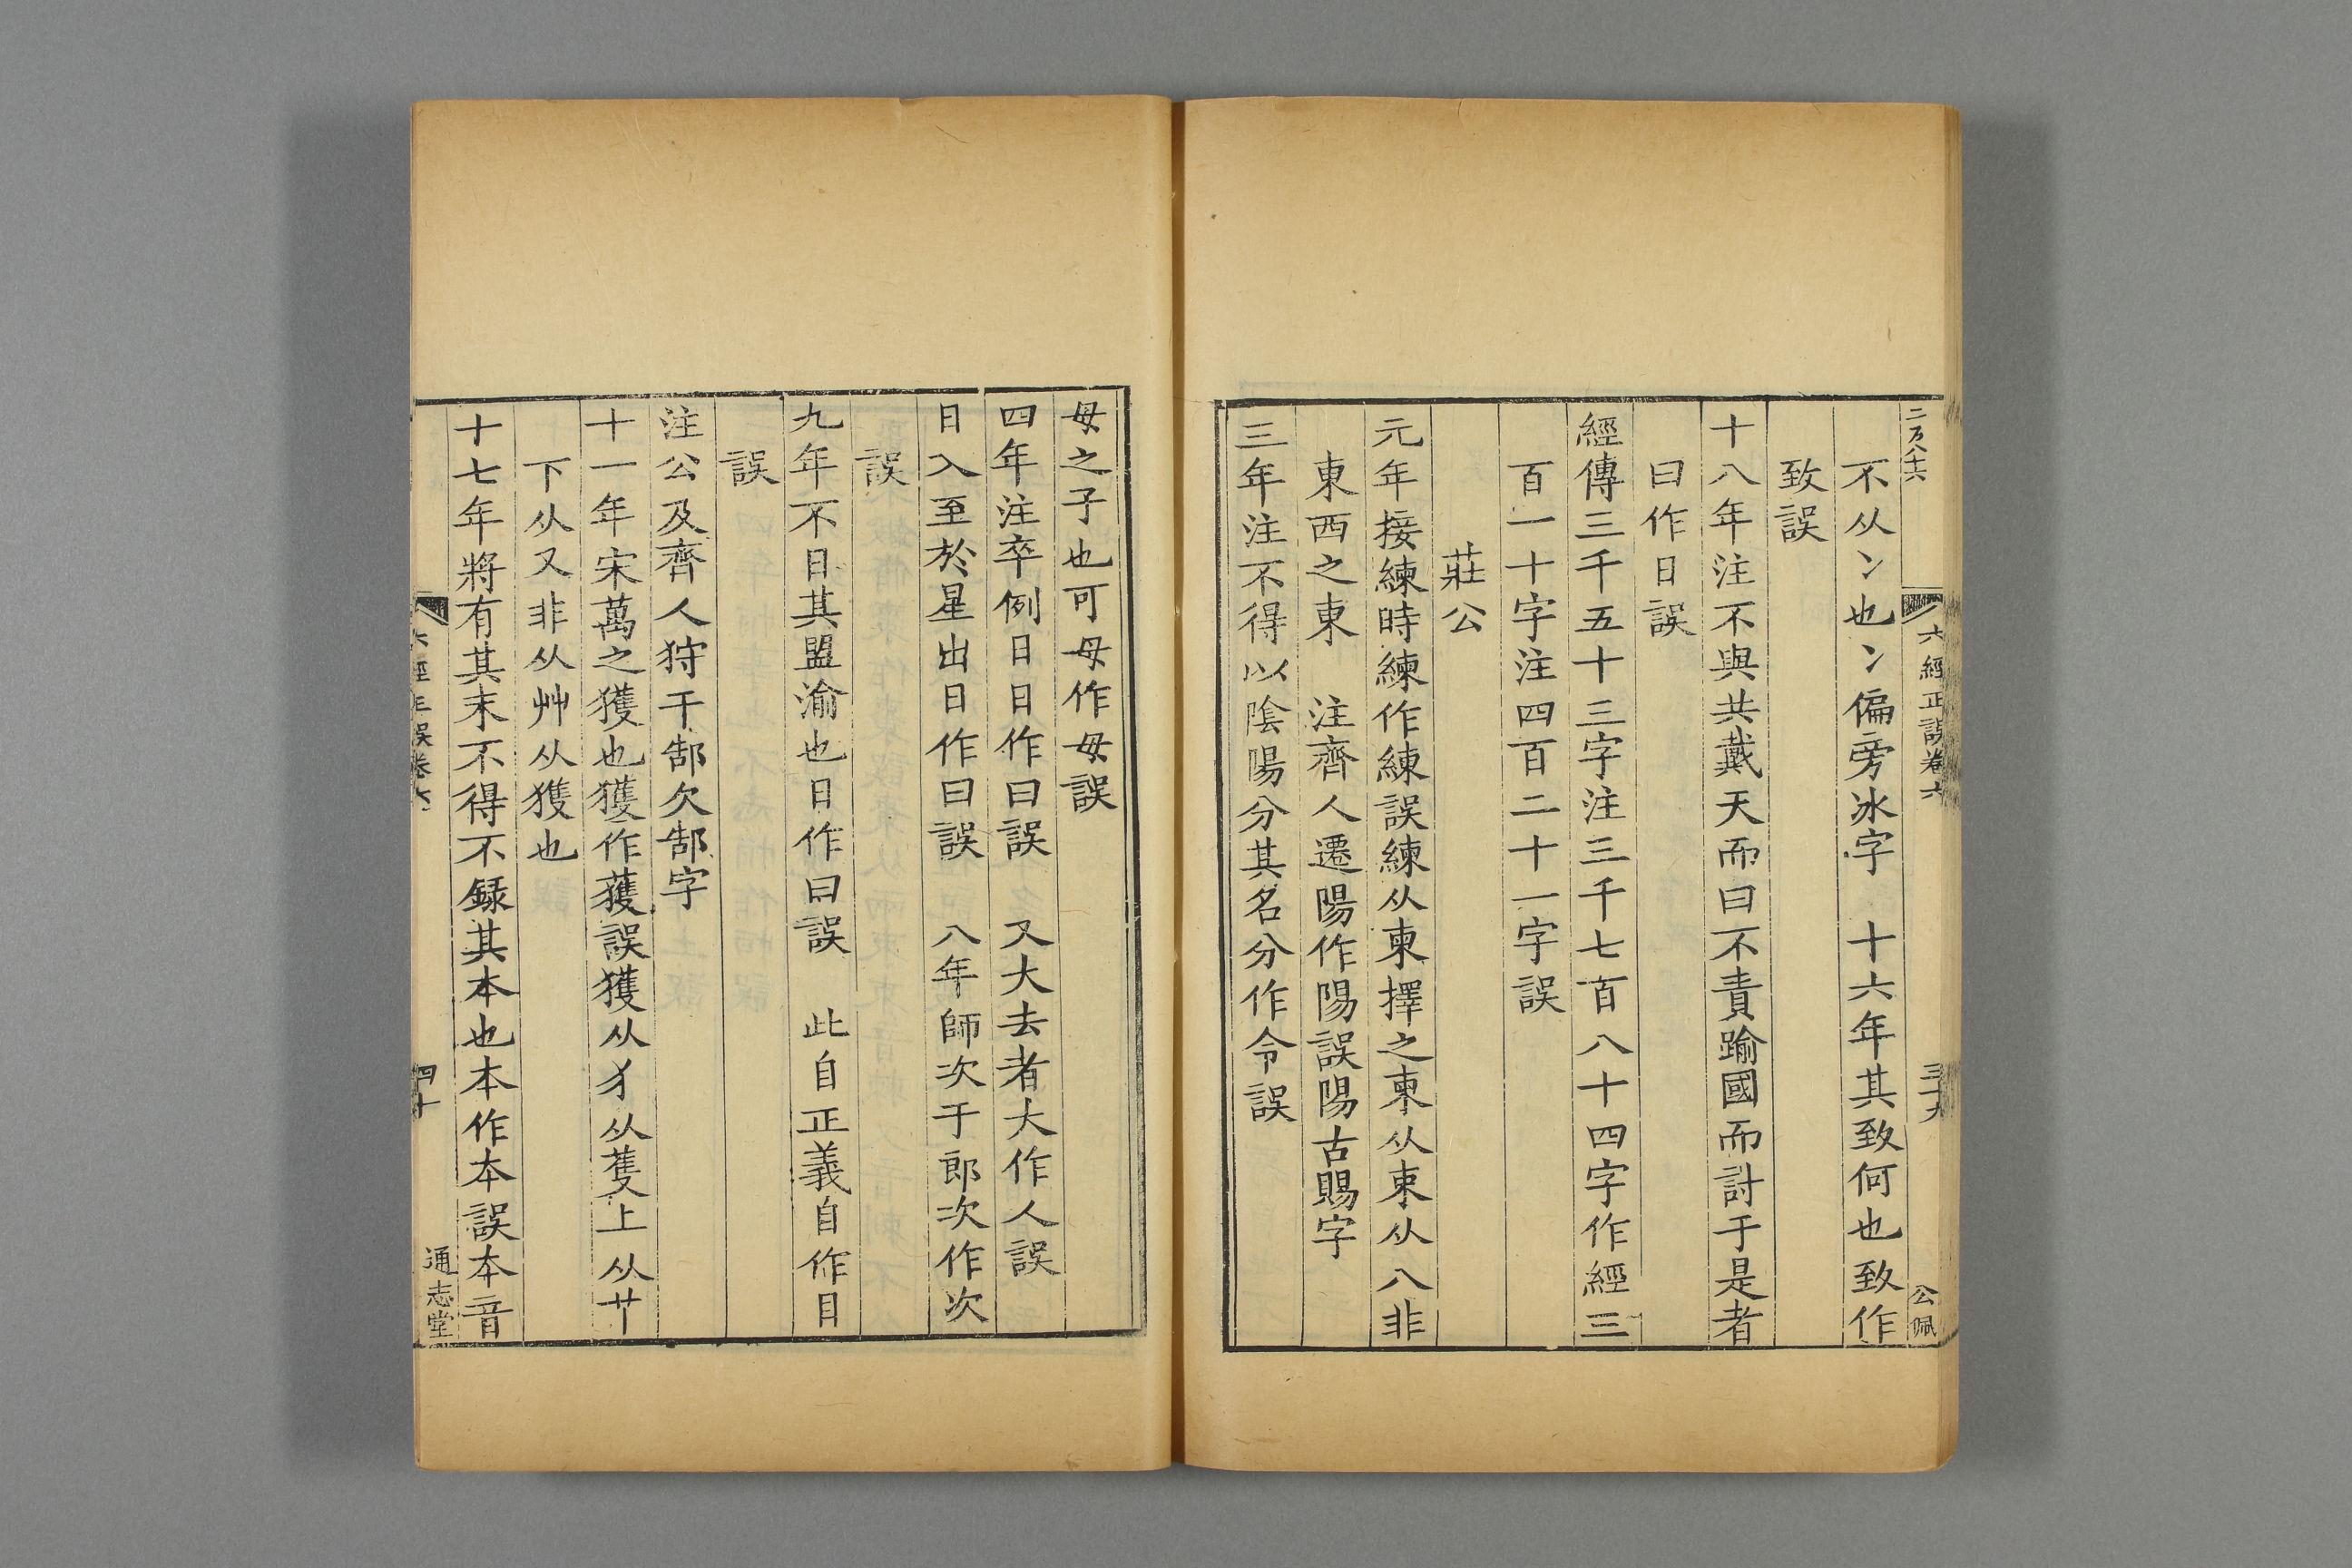 二百八十六
六經正誤卷六
三十九
公佩
不从冫也冫偏旁冰字　十六年其致何也致作
致誤
十八年注不與共戴天而曰不責踰國而討于是者
曰作日誤
經傳三千五十三字注三千七百八十四字作經三
百一十字注四百二十一字誤
莊公
元年接練時練作練誤練从柬擇之柬从束从八非
東西之東　注齊人遷陽作陽誤陽古賜字
三年注不得以陰陽分其名分作令誤
母之子也可母作毋誤
四年注卒例日日作曰誤　又大去者大作人誤
日入至於星出日作曰誤　八年師次于郎次作次
誤
九年不日其盟渝也日作曰誤　此自正義自作目
誤
注公及齊人狩于郜欠郜字
十一年宋萬之獲也獲作獲誤獲从犭从蒦上从艹
下从又非从艸从獲也
十七年將有其末不得不録其本也本作夲誤夲音
六經正誤卷六
四十
通志堂